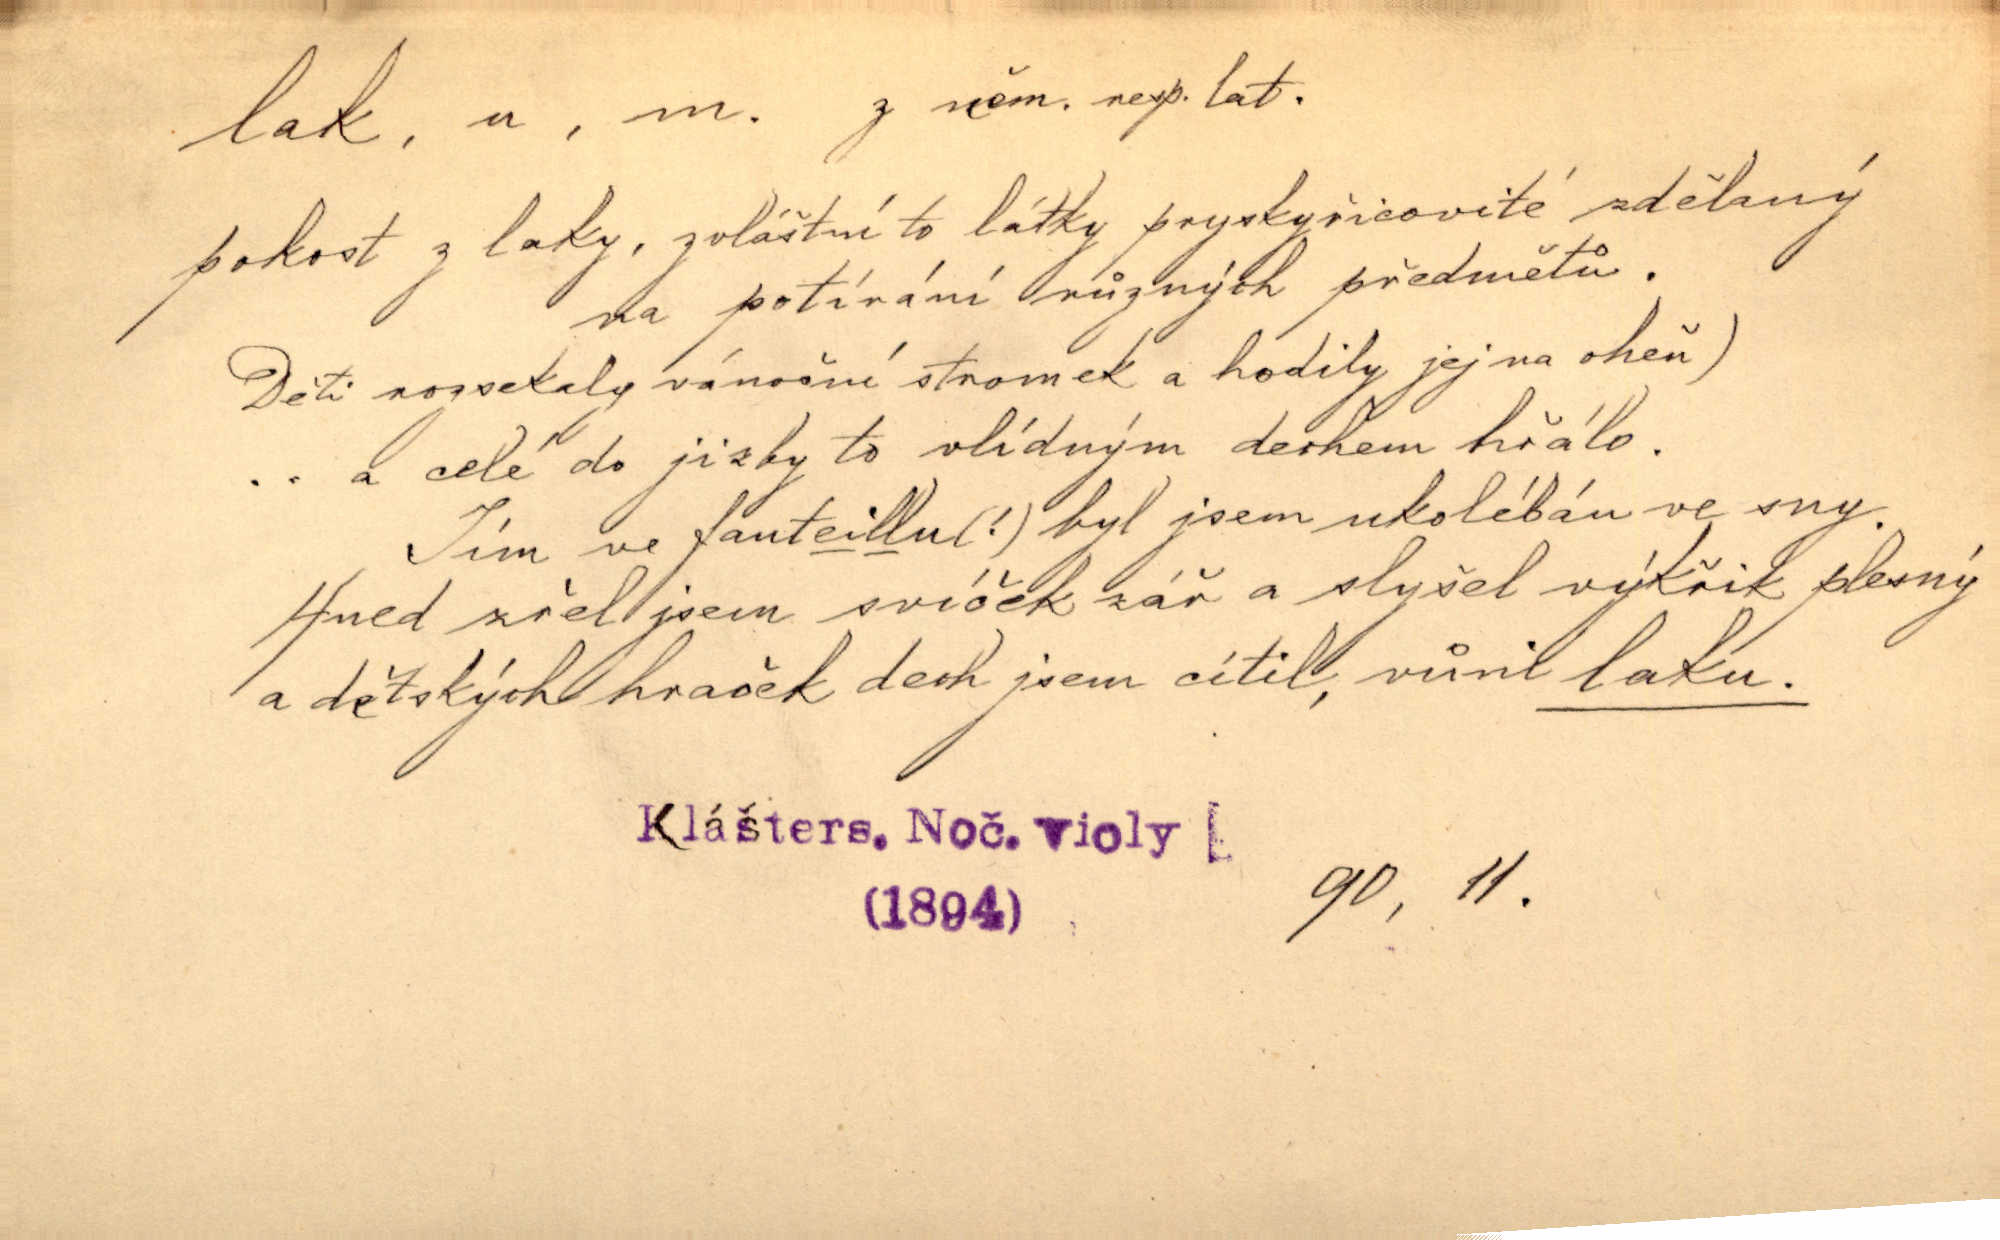 lak, u, m. z něm. resp. lat.
pokost z laky, zvláštní to látky pryskyřicovité zdělaný
na potírání různých předmětů.
Děti rozsekaly vánoční stromek a hodily jej na oheň)
.. a celé do jizby to vlídným dechem hřálo.
Tím ve fauteillu(!) byl jsem ukolébán ve sny.
Hned zřel jsem svíček zář a slyšel výkřik plesný
a dětských hraček dech jsem cítil, vůni laku.
Klášters. Noč. violy
(1894)
90, 11.